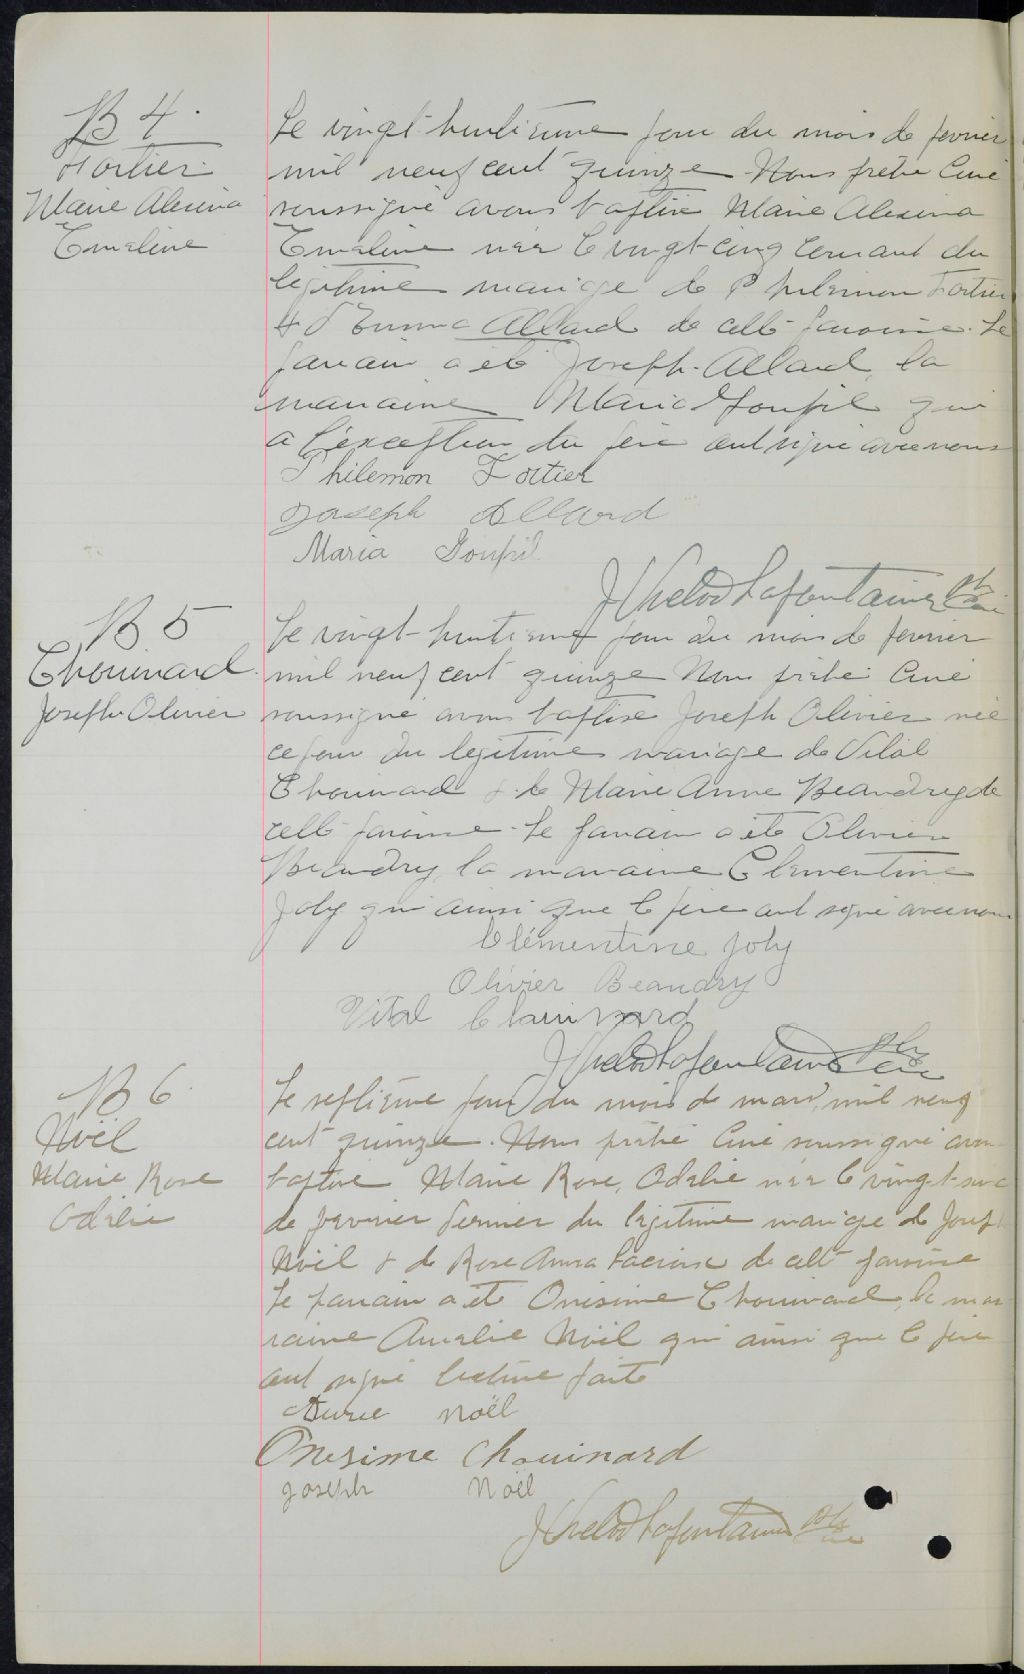 B 4.
Fortier
Marie Alexina
Emeline
Le vingt-huitième jour du mois de fevrier
mil neuf cent quinze Nous prêtre Curé
soussigné avons baptisé Marie Alexina
Emeline née le vingt-cinq courant du
legitime mariage de Philemon Fortier
& d'Emma Allard de cette paroisse. Le
parrain a été Joseph Allard, la
marraine Maria Goupil qui
a l'exception du père ont signé avec nous
Philemon Fortier
Joseph Allard
Maria Goupil
Lafontaine ptre curé
B 5
Chouinard
Joseph Olivier
Le vingt-huitieme jour du mois de fevrier
mil neuf cent quinze Nous prêtre Curé
soussigné avons baptisé Joseph Olivier né
ce jour du legitime mariage de Vital
Chouinard & de Marie Anne Beaudry de
cette paroisse. Le parrain a été Olivier
Beaudry la marraine Clementine
Joly qui ainsi que le père ont signé avec nous
Clémentine Joly
Olivier Beaudry
Vital Chouinard
Lafontaine ptre curé
B 6
Noël
Marie Rose
Odelie
Le septième jour du mois de mars, mil neuf
cent quinze. Nous prêtre Curé soussigné avons
baptisé Marie Rose, Odelie née le vingt-
de fevrier dernier du legitime mariage de Joseph
Noël & de Rose Anna de cette paroisse
Le parrain a été Onisime Chouinard, la mar
raine Amelie Noël qui ainsi que le père
ont signé lecture faite
Noël
Onesime Chouinard
Joseph Noël
Lafontaine ptre curé